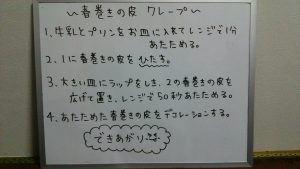 ～春巻きの皮 クレープ～
1. 牛乳とプリンをお皿に入れてレンジで1分
あたためる。
2. 1に春巻きの皮をひたす。
3. 大きい皿にラップをしき、2の春巻きの皮を
広げて置き、レンジで50秒あたためる。
4. あたためた春巻きの皮をデコレーションする。
できあがり